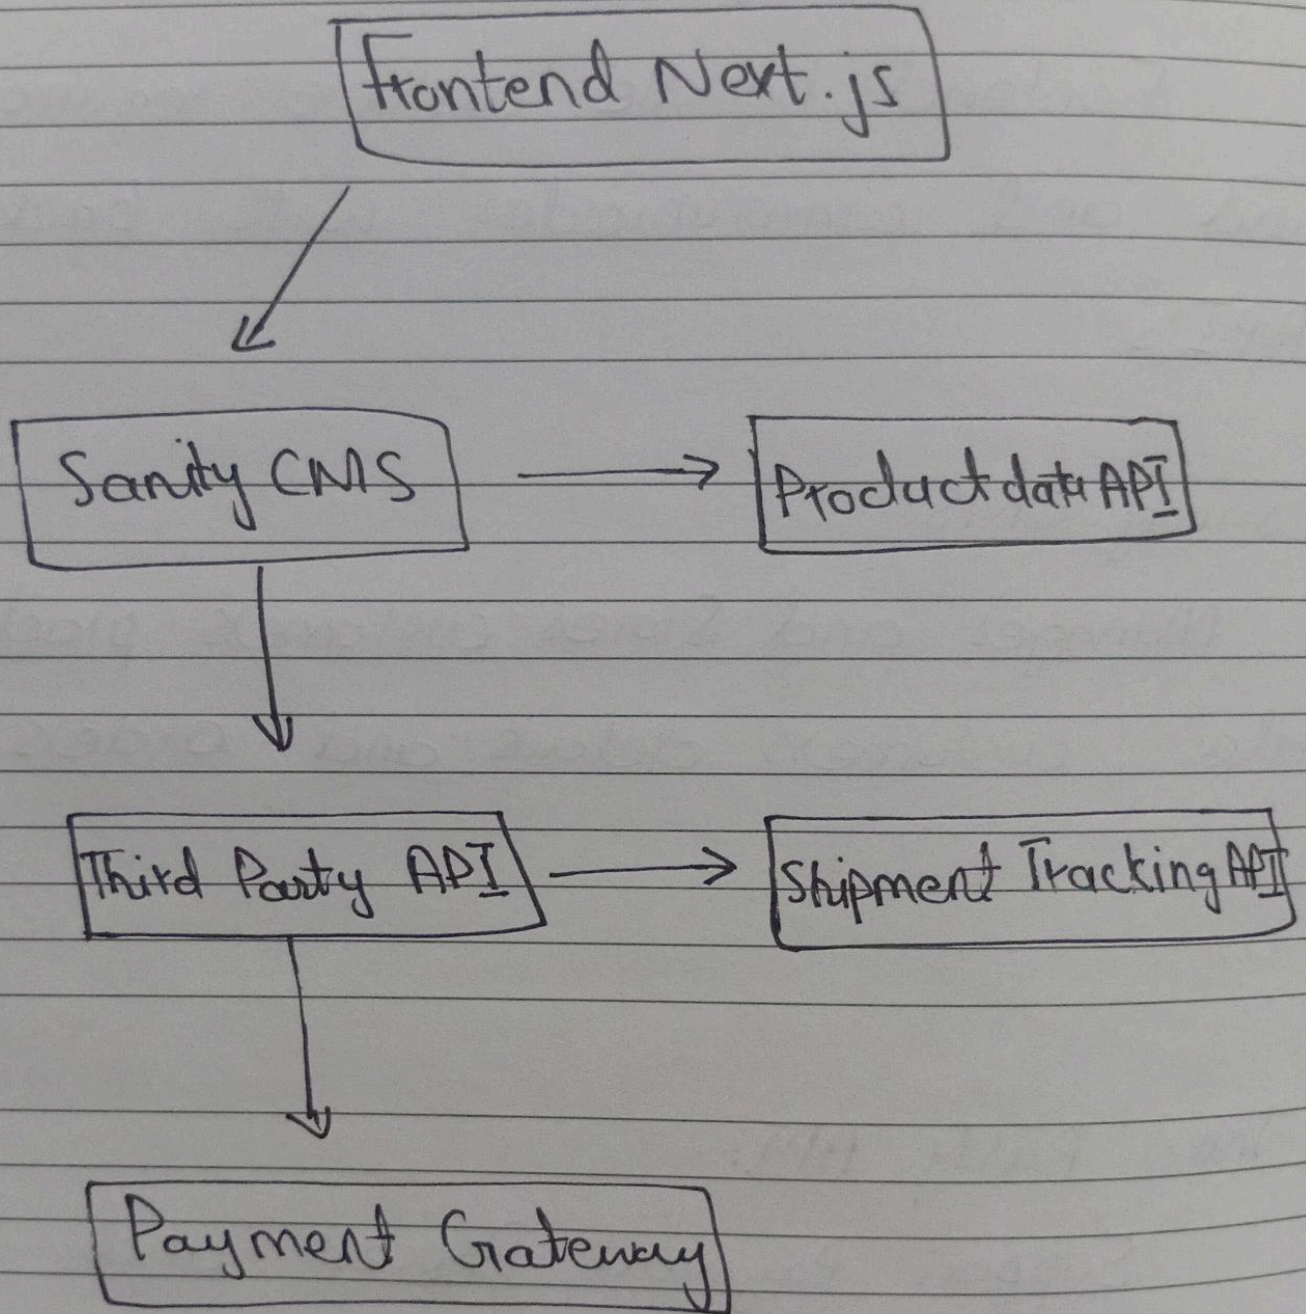 Frontend Next.js
Sanity CMS
Product data API
Third Party API
Shipment Tracking API
Payment Gateway